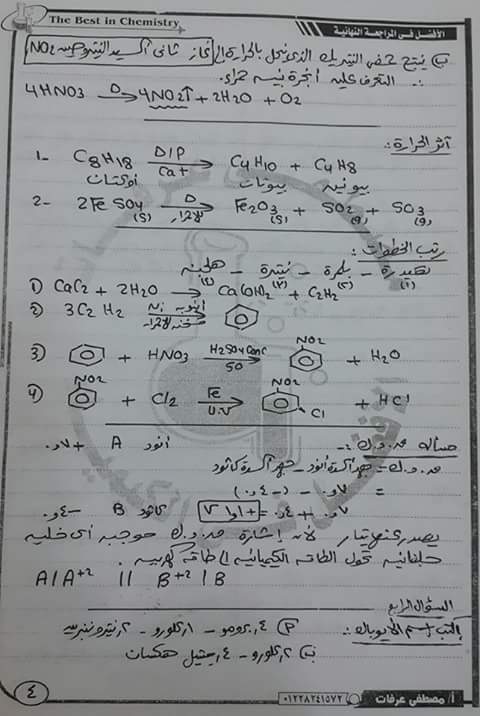 The Best in Chemistry
الأفضل في المراجعة النهائية
ب) ينتج حمض النيتريك الذي ينحل بالحرارة إلى غاز ثاني أكسيد النيتروجين NO2
∴ التعرف عليه أبخرة بنية حمراء.
4HNO3 —Δ→ 4NO2↑ + 2H2O + O2
أثر الحرارة:
1- C8H18 —Δ/P Cat→ C4H10 + C4H8
أوكتان بيوتان بيوتين
2- 2FeSO4(s) —Δ→ Fe2O3(s) + SO2(g) + SO3(g)
رتب الخطوات:
هيدرة - بلمرة - نيترة - هلجنة
(١) (٢) (٣) (٤)
1) CaC2 + 2H2O → Ca(OH)2 + C2H2
2) 3C2H2 —أنبوبة Ni→
3) + HNO3 —H2SO4 Conc 50→ NO2 + H2O
4) NO2 + Cl2 —Fe U.V→ NO2 Cl + HCl
مسألة ق.د.ك :-
أنود A + ٧و٠
ق.د.ك = جهد أكسدة أنود - جهد أكسدة كاثود
= ٧و٠ - (-٤و٠)
٧و٠ + ٤و٠ = + ١و١ V كاثود B -٤و٠
يصدر عنها تيار لأن إشارة ق.د.ك موجبة أي خلية
جلفانية تحول الطاقة الكيميائية إلى طاقة كهربية.
A | A+2 || B+2 | B
السؤال الرابع
أكتب اسم الأيوباك :
٤ برومو - ١ كلورو - ٢ نيترو بنزين
ب) ٢ كلورو - ٤ ميثيل هكسان
٤
٠١٢٢٨٢٤١٥٧٢
أ/ مصطفى عرفات